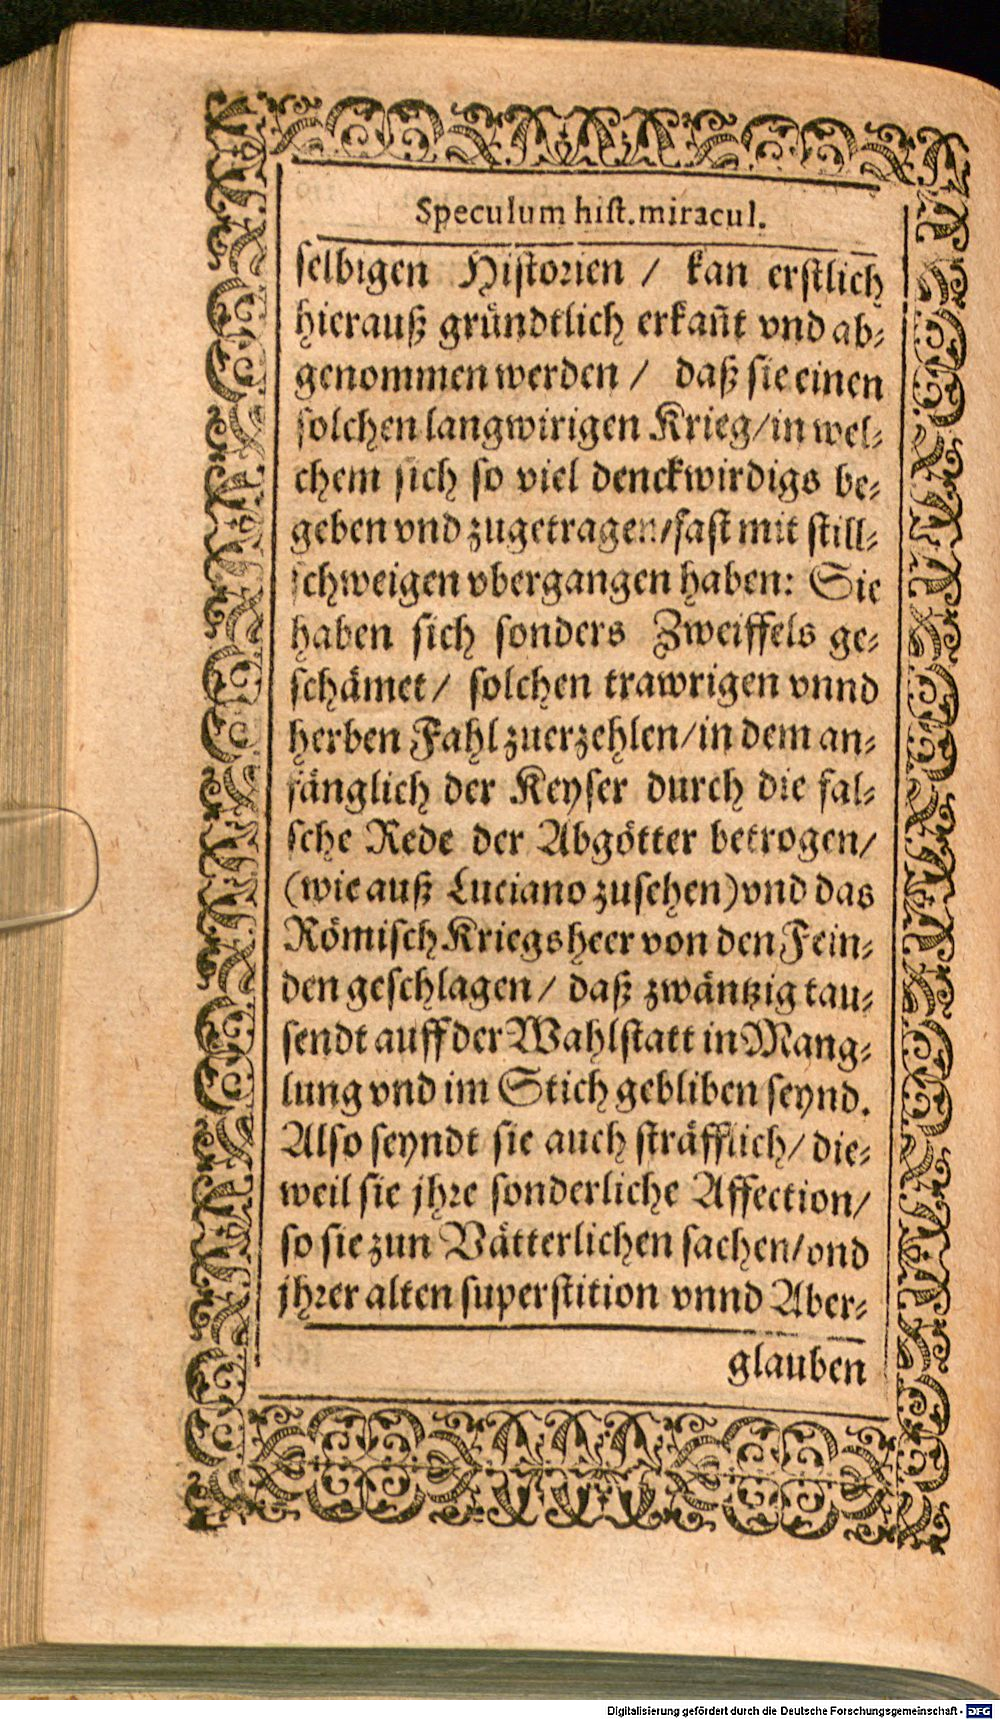 Speculum hiſt. miracul.
ſelbigen Hiſtorien / kan erſtlich
hierauß gründtlich erkañt vnd ab⸗
genommen werden / daß ſie einen
ſolchen langwirigen Krieg/in wel⸗
chem ſich ſo viel denckwirdigs be⸗
geben vnd zugetragen/faſt mit ſtill⸗
ſchweigen vbergangen haben: Sie
haben ſich ſonders Zweiffels ge⸗
ſchämet/ ſolchen trawrigen vnnd
herben Fahl zuerzehlen/in dem an⸗
fänglich der Keyſer durch die fal⸗
ſche Rede der Abgötter betrogen/
(wie auß Luciano zuſehen) vnd das
Römiſch Kriegsheer von den Fein⸗
den geſchlagen/ daß zwäntzig tau⸗
ſendt auff der Wahlſtatt in Mang⸗
lung vnd im Stich gebliben ſeynd.
Alſo ſeyndt ſie auch ſträfflich/ die⸗
weil ſie jhre ſonderliche Affection/
ſo ſie zun Vätterlichen ſachen/vnd
jhrer alten ſuperſtition vnnd Aber⸗
glauben
Digitalisierung gefördert durch die Deutsche Forschungsgemeinschaft - DFG